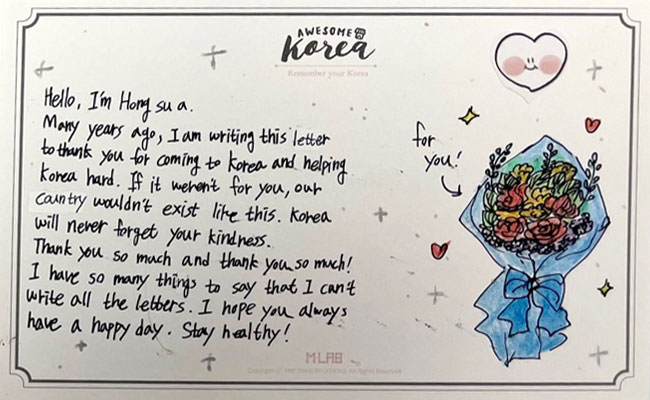 AWESOME
Korea
Remember your Korea
Hello, I'm Hong su a.
Many years ago, I am writing this letter
to thank you for coming to Korea and helping
Korea hard. If it weren't for you, our
country wouldn't exist like this. Korea
will never forget your kindness.
Thank you so much and thank you so much!
I have so many things to say that I can't
write all the letters. I hope you always
have a happy day. Stay healthy!
for
you!
MLAB
All Rights Reserved